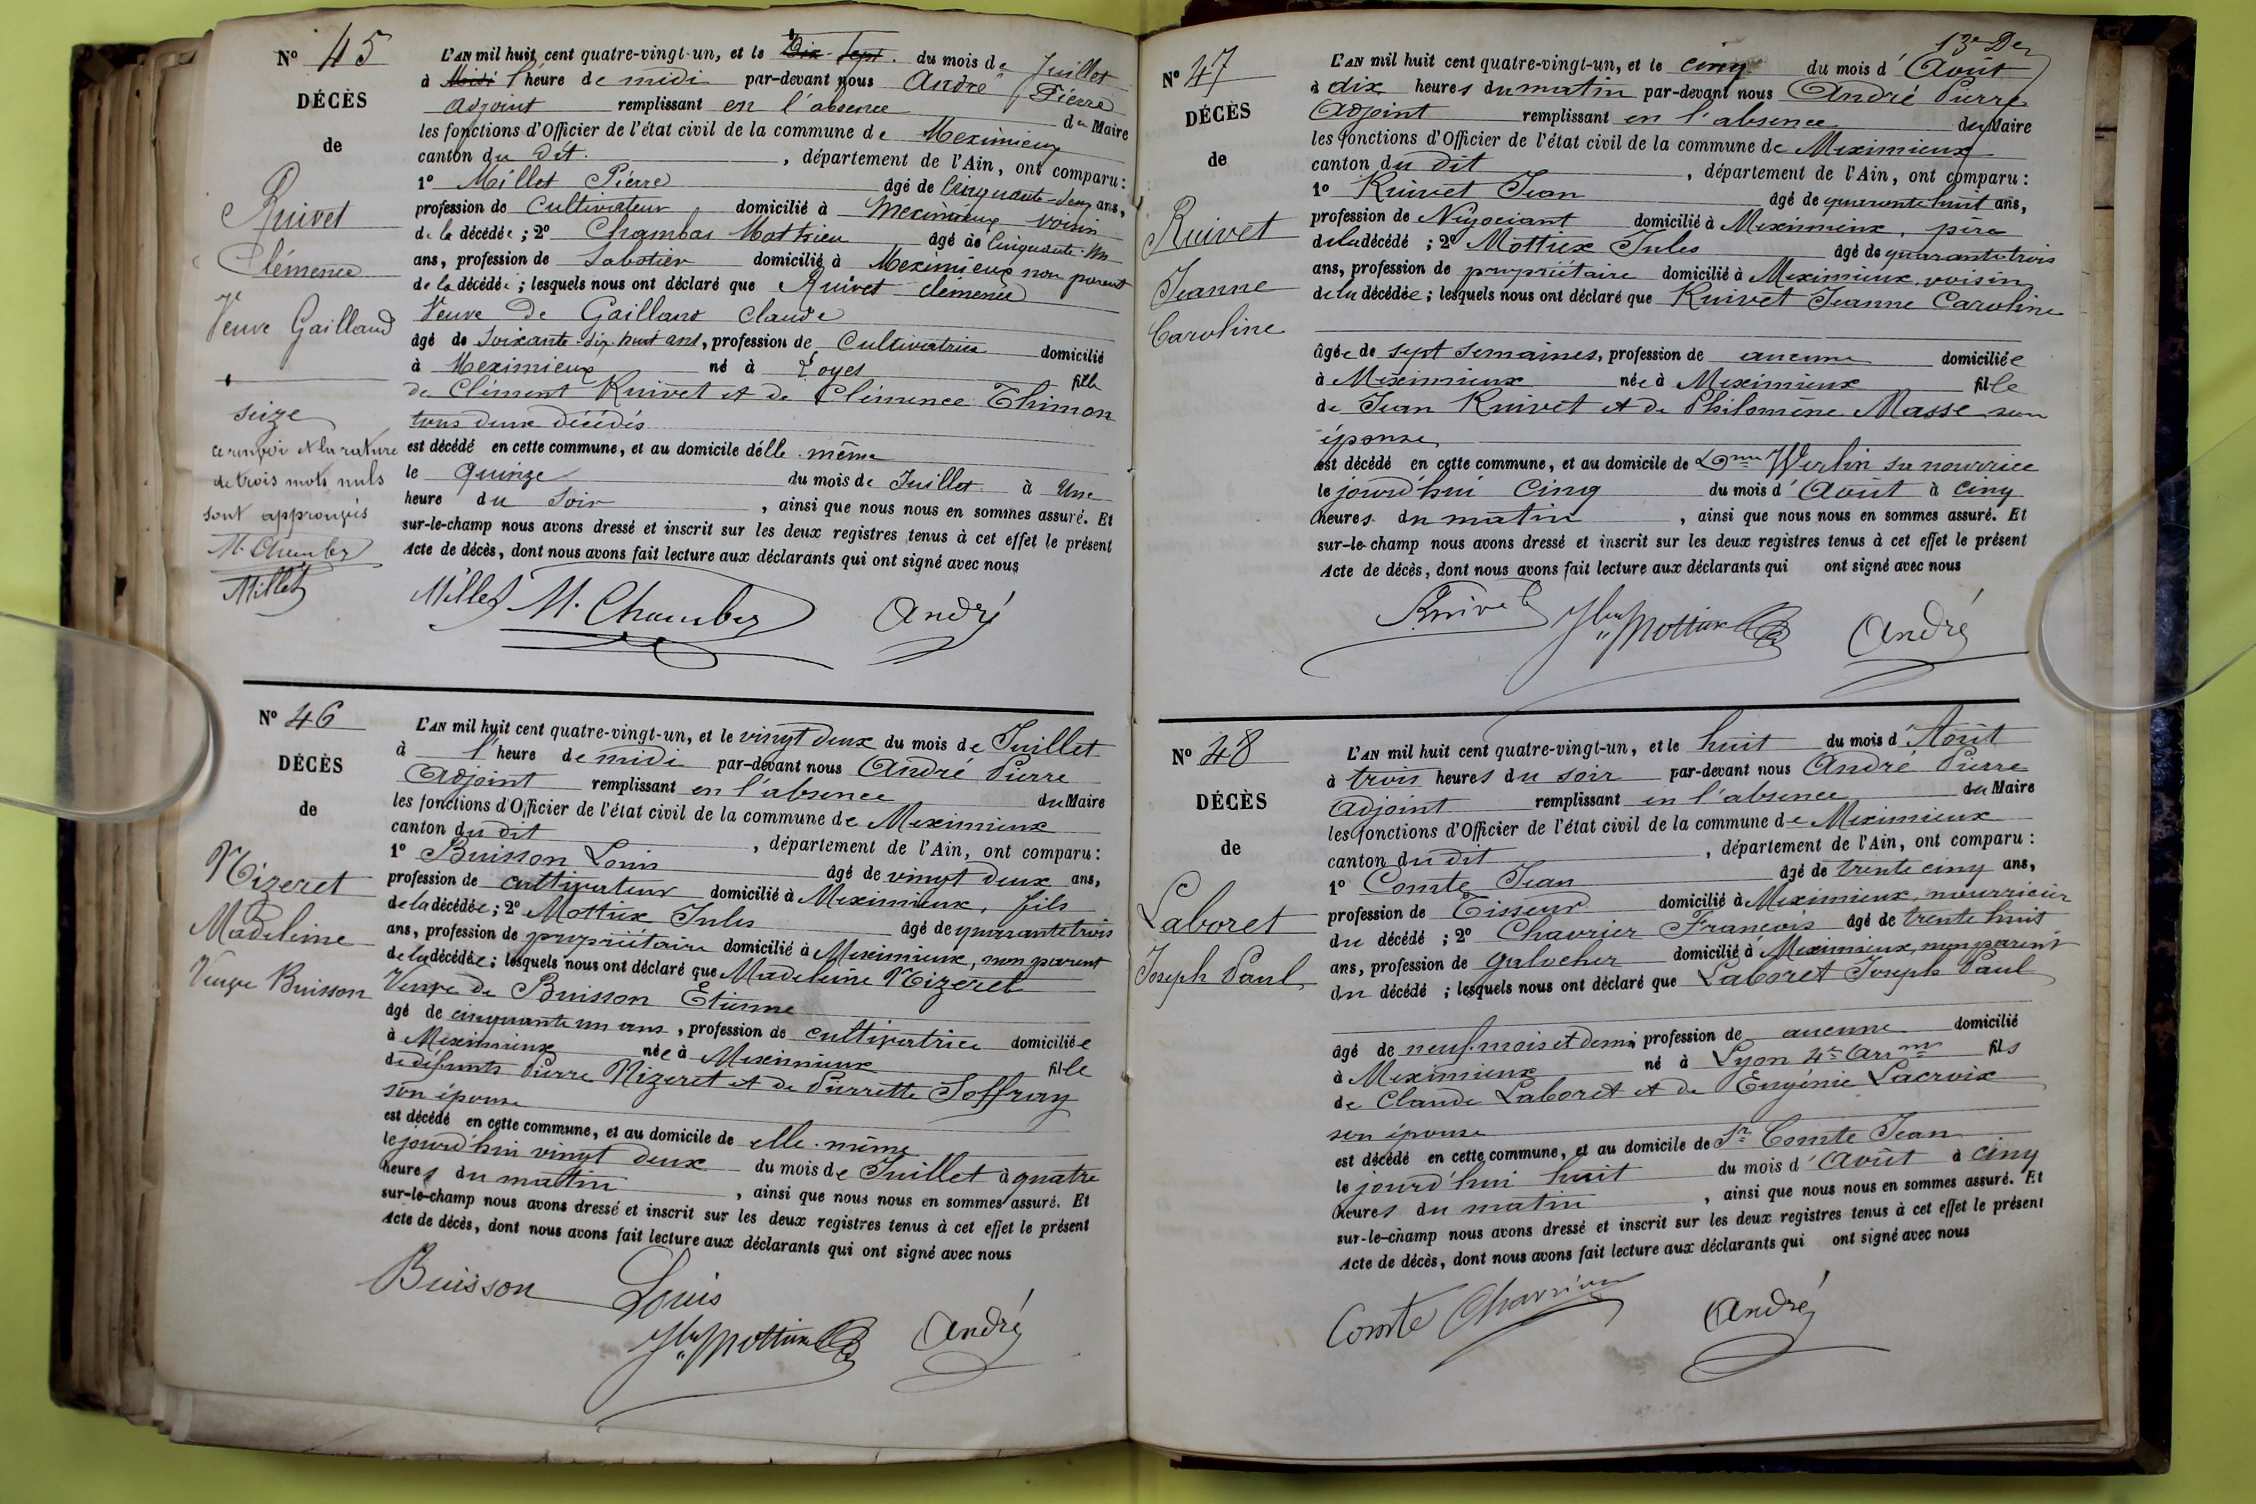 N° 45
DÉCÈS
de
Ruivet
Clémence
Veuve Gailland
seize
ce renvoi et la rature
de trois mots nuls
sont approuvés
M. Chambas
Millet
L'AN mil huit cent quatre-vingt-un, et le Dix-Sept du mois de Juillet
à Midi l'heure de midi par-devant nous André Pierre
Adjoint remplissant en l'absence du Maire
les fonctions d'Officier de l'état civil de la commune de Meximieux
canton du dit. , département de l'Ain, ont comparu :
1° Millet Pierre âgé de Cinquante-deux ans,
profession de Cultivateur domicilié à Meximieux voisin
de la décédée ; 2° Chambas Mathieu âgé de Cinquante-un
ans, profession de Sabotier domicilié à Meximieux non parent
de la décédée ; lesquels nous ont déclaré que Ruivet Clemence
Veuve De Gailland Claude
âgé de Soixante-dix huit ans, profession de Cultivatrice domicilié
à Meximieux né à Loyes fille
de Clément Ruivet et de Clémence Thimon
tous deux décédés
est décédé en cette commune, et au domicile d'elle-même
le quinze du mois de Juillet à Une
heure du Soir , ainsi que nous nous en sommes assuré. Et
sur-le-champ nous avons dressé et inscrit sur les deux registres tenus à cet effet le présent
Acte de décès, dont nous avons fait lecture aux déclarants qui ont signé avec nous
Millet M. Chambas André
N° 46
DÉCÈS
de
Nizeret
Madeleine
Veuve Buisson
L'AN mil huit cent quatre-vingt-un, et le vingt deux du mois de Juillet
à l'heure de midi par-devant nous André Pierre
Adjoint remplissant en l'absence du Maire
les fonctions d'Officier de l'état civil de la commune de Meximieux
canton du dit , département de l'Ain, ont comparu :
1° Buisson Louis âgé de vingt deux ans,
profession de cultivateur domicilié à Meximieux, fils
de la décédée ; 2° Mottiex Jules âgé de quarante trois
ans, profession de propriétaire domicilié à Meximieux, non parent
de la décédée ; lesquels nous ont déclaré que Madeleine Nizeret
Veuve de Buisson Etienne
âgé de cinquante un ans , profession de cultivatrice domiciliée
à Meximieux née à Meximieux fille
de défunts Pierre Nizeret et de Pierrette Joffray
son épouse
est décédé en cette commune, et au domicile de elle-même
le jourd'hui vingt deux du mois de Juillet à quatre
heures du matin , ainsi que nous nous en sommes assuré. Et
sur-le-champ nous avons dressé et inscrit sur les deux registres tenus à cet effet le présent
Acte de décès, dont nous avons fait lecture aux déclarants qui ont signé avec nous
Buisson Louis
Jles Mottiex André
13e Der
N° 47
DÉCÈS
de
Ruivet
Jeanne
Caroline
L'AN mil huit cent quatre-vingt-un, et le cinq du mois d'Août
à dix heures du matin par-devant nous André Pierre
Adjoint remplissant en l'absence du Maire
les fonctions d'Officier de l'état civil de la commune de Meximieux
canton du dit , département de l'Ain, ont comparu :
1° Ruivet Jean âgé de quarante huit ans,
profession de Négociant domicilié à Meximieux, père
de la décédé ; 2° Mottiex Jules âgé de quarante trois
ans, profession de propriétaire domicilié à Meximieux, voisin
de la décédée ; lesquels nous ont déclaré que Ruivet Jeanne Caroline
âgée de sept semaines, profession de aucune domiciliée
à Meximieux née à Meximieux fille
de Jean Ruivet et de Philomène Masse son
épouse
est décédé en cette commune, et au domicile de Dme Werlin sa nourrice
le jourd'hui cinq du mois d'Août à cinq
heures du matin , ainsi que nous nous en sommes assuré. Et
sur-le-champ nous avons dressé et inscrit sur les deux registres tenus à cet effet le présent
Acte de décès, dont nous avons fait lecture aux déclarants qui ont signé avec nous
Ruivet Jles Mottiex André
N° 48
DÉCÈS
de
Laboret
Joseph Paul
L'AN mil huit cent quatre-vingt-un, et le huit du mois d'Août
à trois heures du soir par-devant nous André Pierre
Adjoint remplissant en l'absence du Maire
les fonctions d'Officier de l'état civil de la commune de Meximieux
canton du dit , département de l'Ain, ont comparu :
1° Comte Jean âgé de trente cinq ans,
profession de Tisseur domicilié à Meximieux, nourricier
du décédé ; 2° Chavrier François âgé de trente huit
ans, profession de galocher domicilié à Meximieux, non parent
du décédé ; lesquels nous ont déclaré que Laboret Joseph Paul
âgé de neuf mois et demi profession de aucune domicilié
à Meximieux né à Lyon 4e Arrmt fils
de Claude Laboret et de Eugénie Lacroix
son épouse
est décédé en cette commune, et au domicile de Sr Comte Jean
le jourd'hui huit du mois d'Août à cinq
heures du matin , ainsi que nous nous en sommes assuré. Et
sur-le-champ nous avons dressé et inscrit sur les deux registres tenus à cet effet le présent
Acte de décès, dont nous avons fait lecture aux déclarants qui ont signé avec nous
Comte Chavrier André